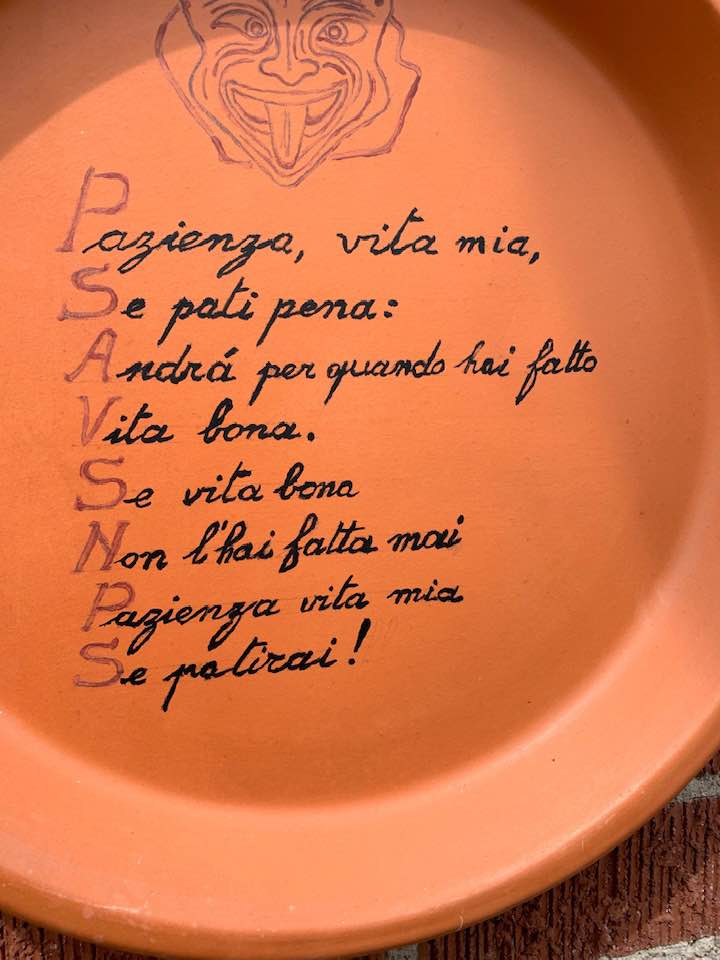 Pazienza, vita mia,
Se pati pena:
Andrá per quando hai fatto
Vita bona.
Se vita bona
Non l'hai fatta mai
Pazienza vita mia
Se patirai!